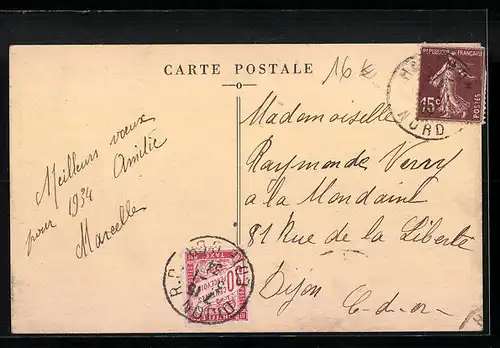 CARTE POSTALE
16 €
RÉPUBLIQUE FRANÇAISE
15c
POSTES
NORD
Meilleurs vœux
pour 1934 Amitié
Marcelle
Mademoiselle
Raymonde Verry
a la Mondaine
81 Rue de la Liberté
Dijon
C-d-or
TAXE
NORD